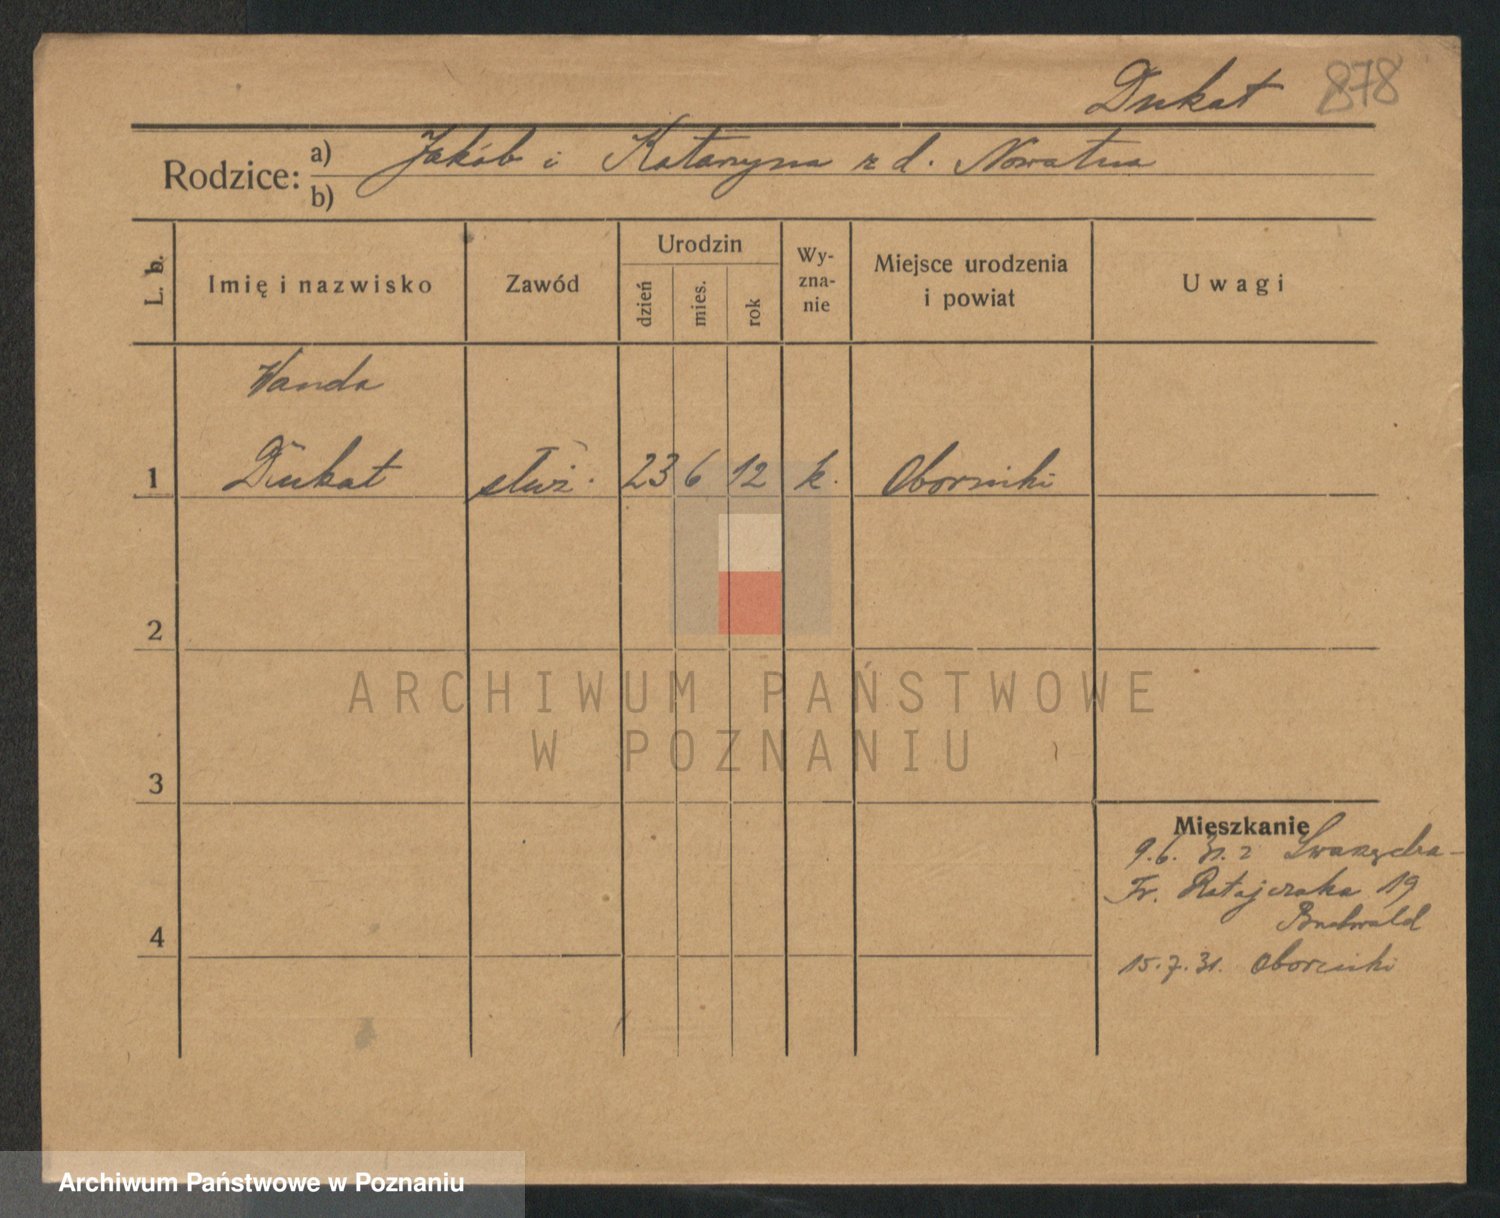 Dukat 878
Rodzice: a) Jakób i Katarzyna z d. Nowatna
b)
L. b. Imię i nazwisko Zawód Urodzin dzień mies. rok Wy-zna-nie Miejsce urodzenia i powiat Uwagi
Wanda
1 Dukat służ. 23 6 12 k. Oborniki
2
ARCHIWUM PAŃSTWOWE
W POZNANIU
3
Mieszkanie
9.6.31. z Swarzędza-
Fr. Ratajczaka 19
Buchwald
4
15.7.31. Oborniki
Archiwum Państwowe w Poznaniu